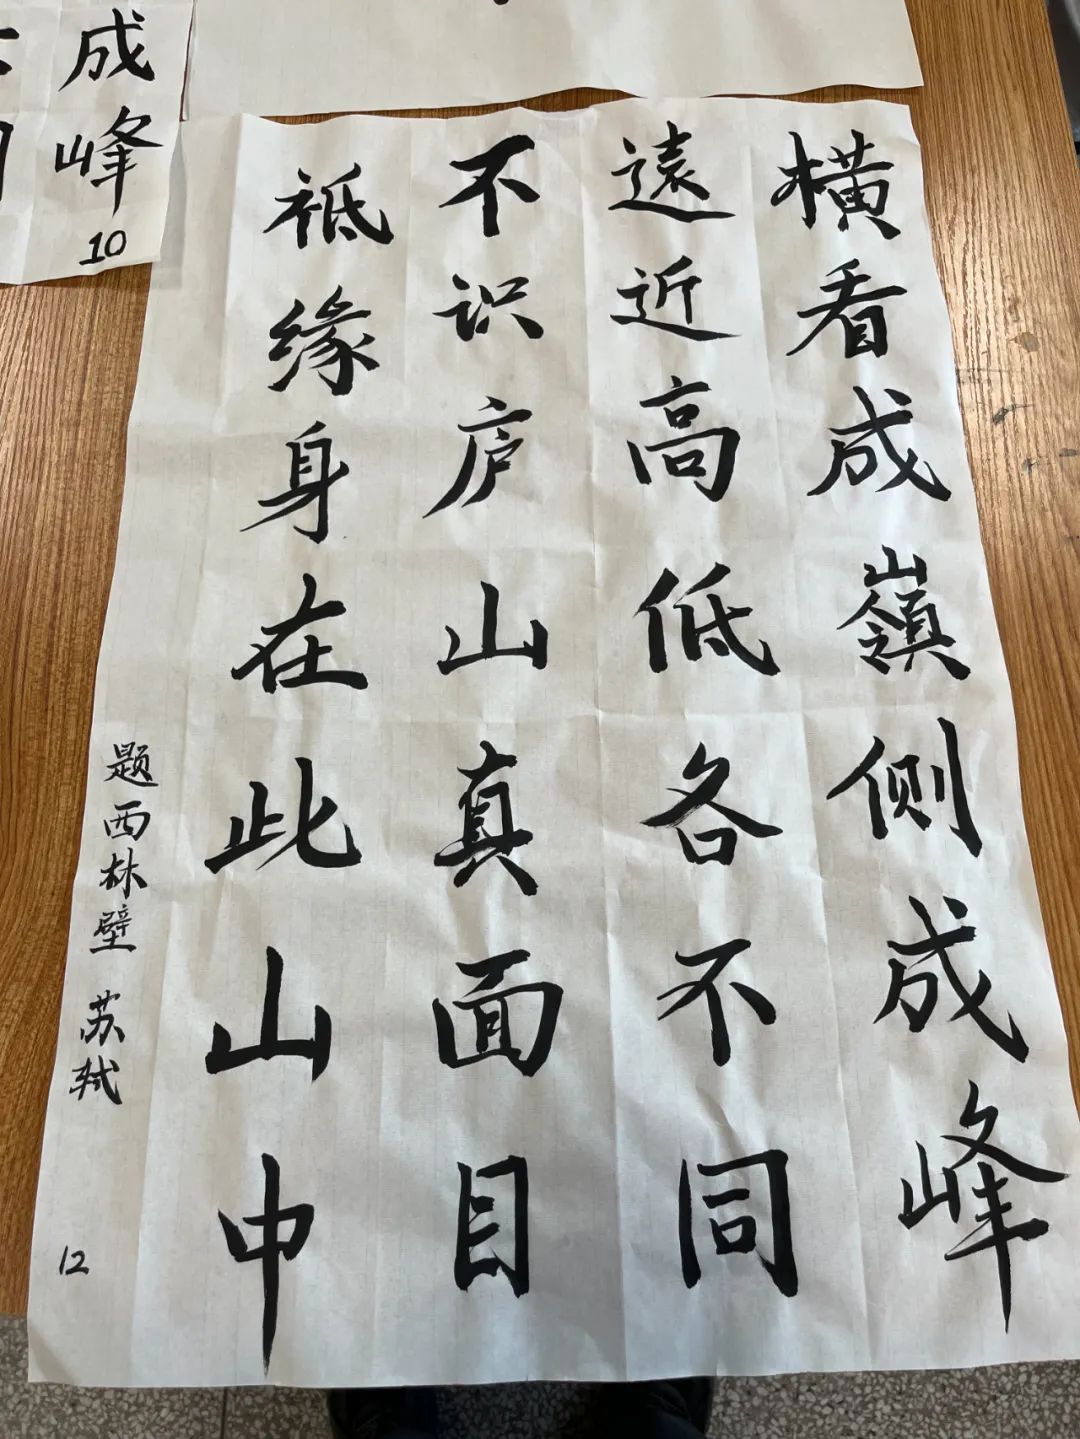 橫看成嶺側成峰
遠近高低各不同
不识庐山真面目
祗缘身在此山中
题西林壁 苏轼
12
成峰
10